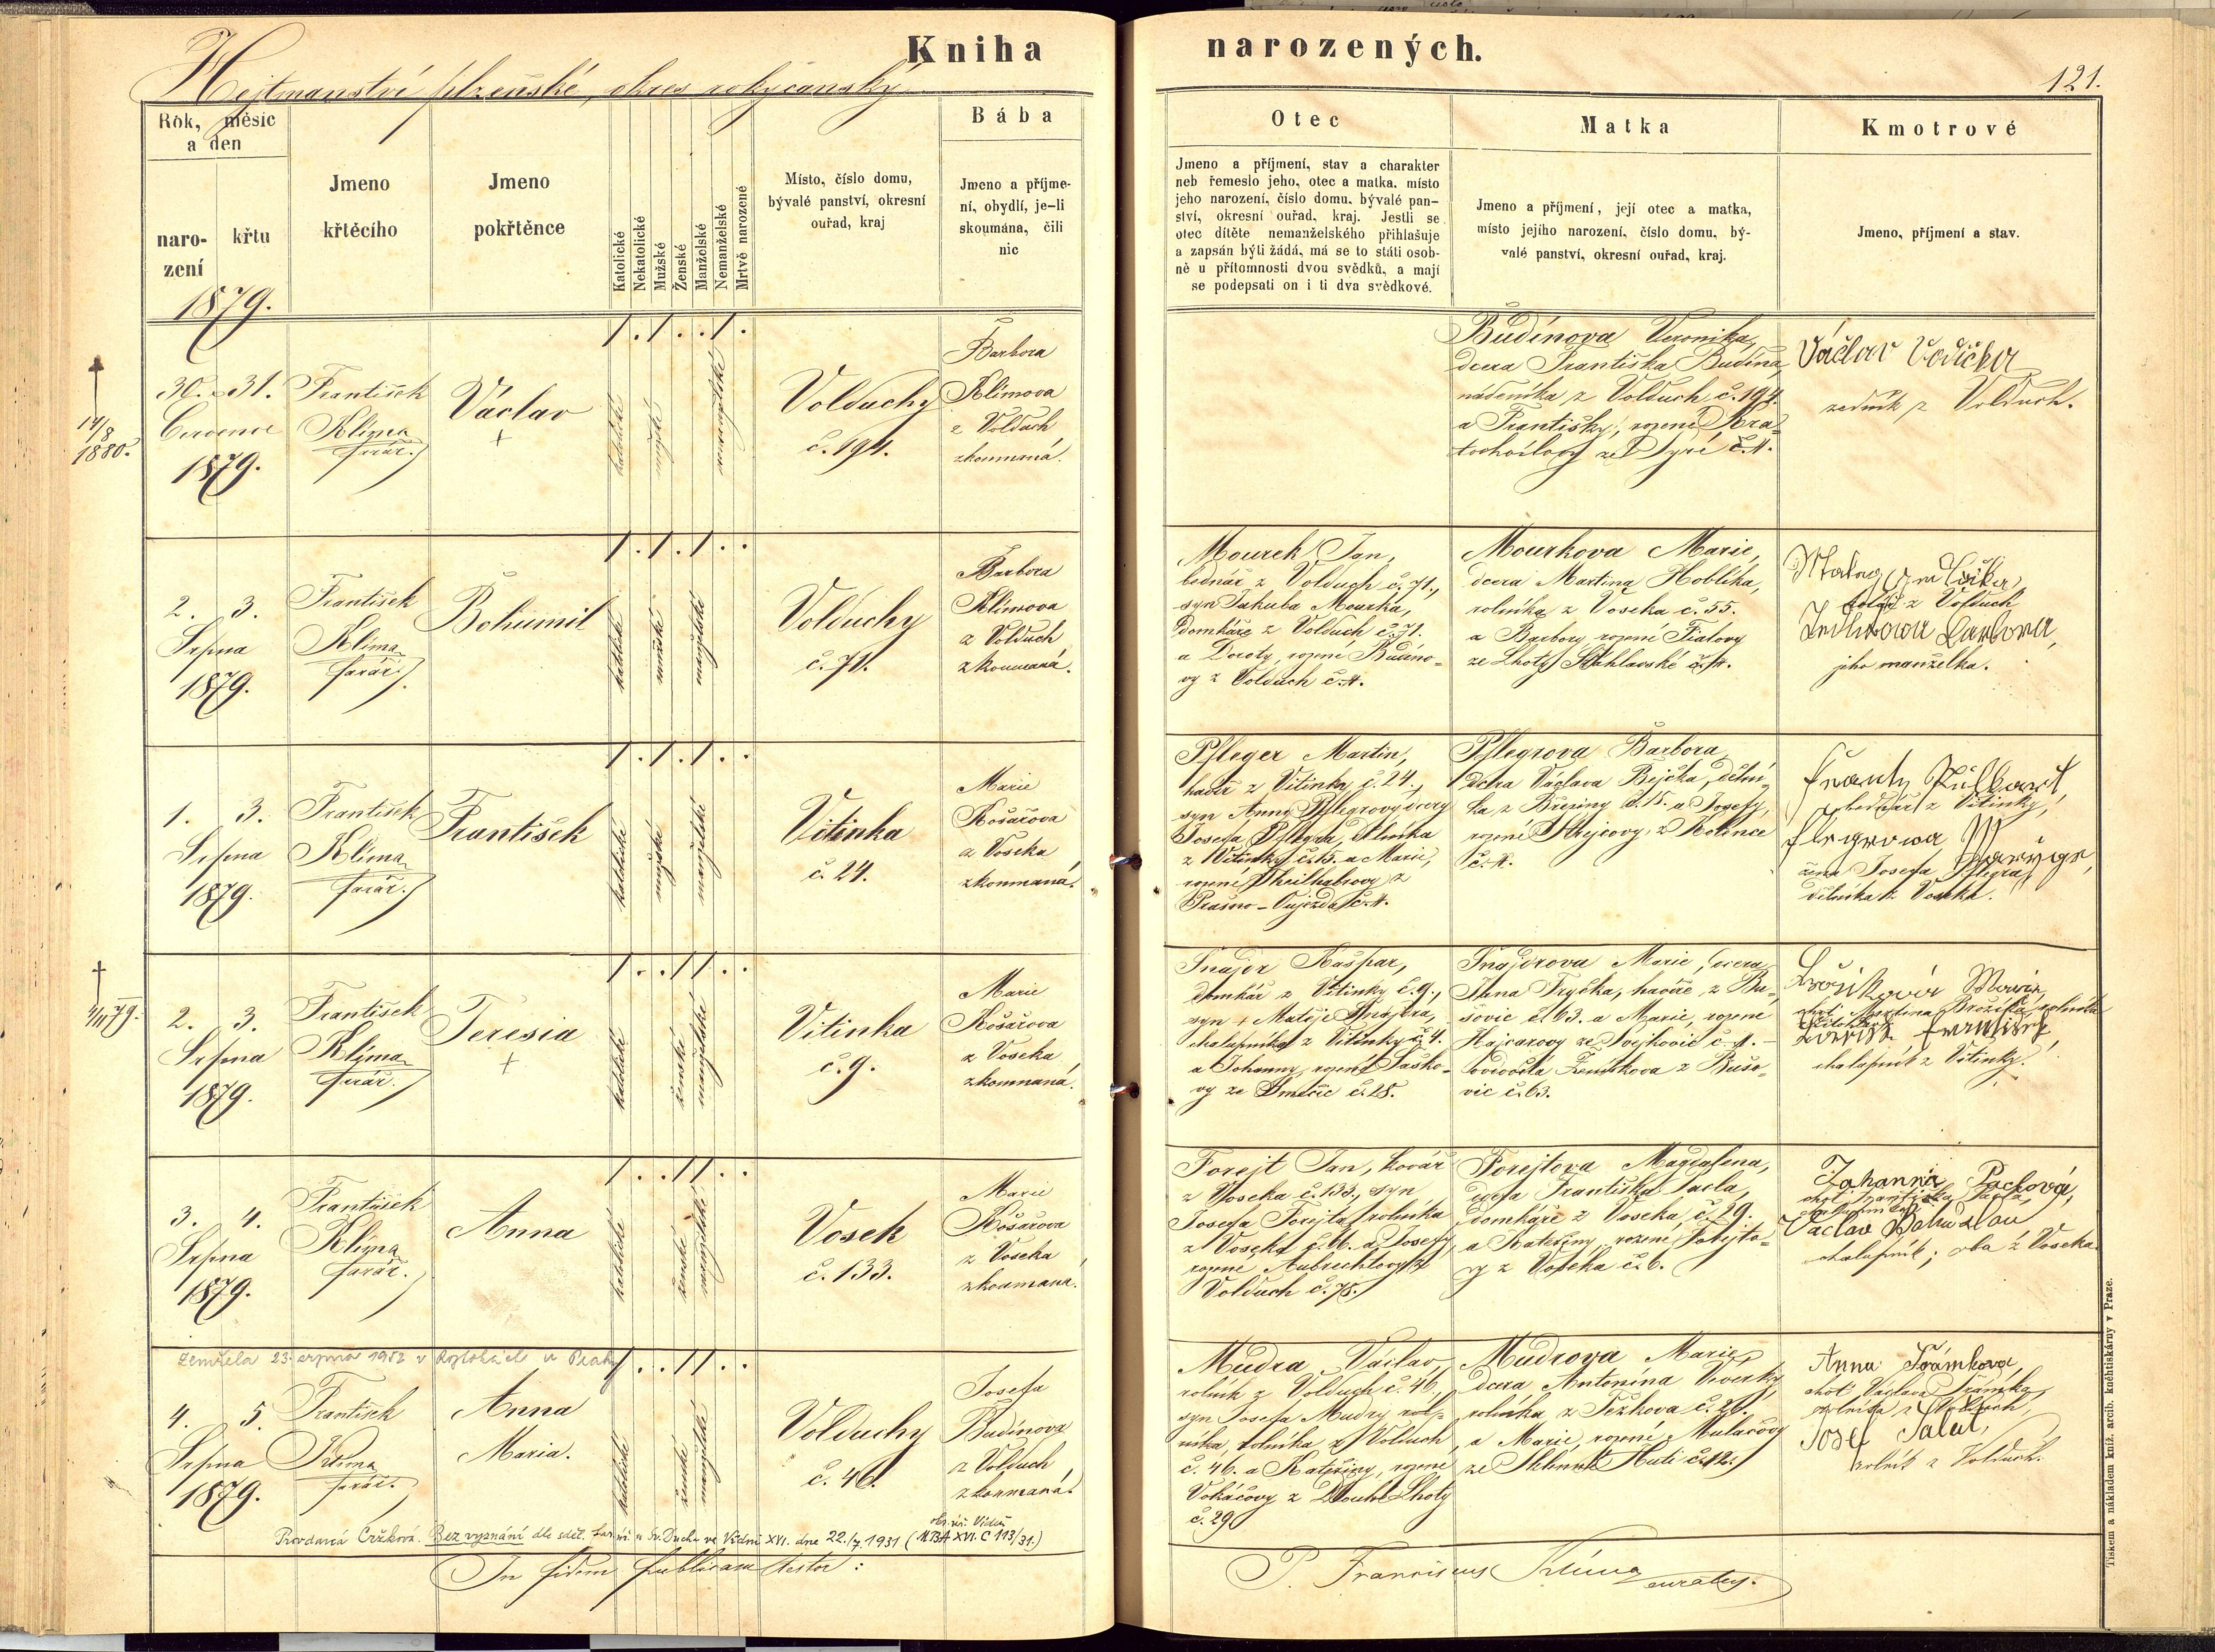 Kniha narozených.
Hejtmanství plzeňské, okres rokycanský.
121.
Rok, měsíc
a den
naro-
zení
křtu
Jmeno
křtěcího
Jmeno
pokřtěnce
Katolické
Nekatolické
Mužské
Ženské
Manželské
Nemanželské
Mrtvě narozené
Místo, číslo domu,
bývalé panství, okresní
ouřad, kraj
Bába
Jmeno a příjme-
ní, obydlí, je-li
skoumána, čili
nic
Otec
Jmeno a příjmení, stav a charakter
neb řemeslo jeho, otec a matka, místo
jeho narození, číslo domu, bývalé pan-
ství, okresní ouřad, kraj. Jestli se
otec dítěte nemanželského přihlašuje
a zapsán býti žádá, má se to státi osob-
ně u přítomnosti dvou svědků, a mají
se podepsati on i ti dva svědkové.
Matka
Jmeno a příjmení, její otec a matka,
místo jejího narození, číslo domu, bý-
valé panství, okresní ouřad, kraj.
Kmotrové
Jmeno, příjmení a stav.
1879.
14/8
1880.
30. 31.
Července
1879.
František
Klima
farář.
Václav
+
katolické
mužské
nemanželské
Volduchy
č. 194.
Barbora
Klimova
z Volduch
zkoumaná.
Budínova Veronika,
dcera Františka Budína,
nádeníka z Volduch č. 194.
a Františky, rozené Kra-
tochvílovy ze Týně č. 4.
Václav Vodička
zedník z Volduch.
2. 3.
Srpna
1879.
František
Klima
farář.
Bohumil
katolické
mužské
manželské
Volduchy
č. 71.
Barbora
Klimova
z Volduch
zkoumaná.
Mourek Jan,
bednář z Volduch č. 71.,
syn Jakuba Mourka,
domkáře z Volduch č. 71.
a Doroty, rozené Budíno-
vy z Volduch č. 4.
Mourkova Marie,
dcera Martina Hoblíka,
rolníka z Voseka č. 55.
a Barbory rozené Fialovy
ze Lhoty
z Volduch
Barbora,
jeho manželka.
1. 3.
Srpna
1879.
František
Klima
farář.
František
katolické
mužské
manželské
Vitinka
č. 24.
Marie
Košařova
z Voseka
zkoumaná.
Pfleger Martin,
havíř z Vitinky č. 24.,
syn Anny Pflegrovy dcery
Josefa Pflegra, dělníka
z Vitinky č. 15. a Marie,
rozené
z
Prašno-Oujezda č. 4.
Pflegrova Barbora
dcera Václava Bejčka, dělní-
ka z Březiny č. 15. a Josefy,
rozené z
č. 4.
z Vitinky,
žena Josefa Pflegra,
dělníka z Voseka.
79.
2. 3.
Srpna
1879.
František
Klima
farář.
Teresia
+
katolické
ženské
manželské
Vitinka
č. 9.
Marie
Košařova
z Voseka
zkoumaná.
Šnajdr Kašpar,
domkář z Vitinky č. 9.,
syn + Matěje Šnajdra,
chalupníka z Vitinky č. 4.
a Johanny, rozené Šaško-
vy ze Smečic č. 28.
Šnajdrova Marie, dcera
Jana Tryčka, havíře z Bu-
šovic č. 63. a Marie, rozené
Hajcarovy ze Svejkovic č. 4.
z Bušo-
vic č. 63.
Marie,
chalupník z Vitinky.
3. 4.
Srpna
1879.
František
Klima
farář.
Anna
katolické
ženské
manželské
Vosek
č. 133.
Marie
Košařova
z Voseka
zkoumaná.
Forejt Jan, kovář
z Voseka č. 133., syn
Josefa Forejta, rolníka
z Voseka č. 66. a Josefy,
rozené Aubrechtovy z
Volduch č. 75.
Forejtova Magdalena,
dcera Františka Pacla,
domkáře z Voseka č. 29.
a Kateřiny, rozené Forejto-
vy z Voseka č. 6.
Johanna Paclová,
chot Františka Pacla,
Václav Bohuslav
chalupník; oba z Voseka.
Zemřela 23. srpna 1952 v Roztokách u Prahy
4. 5.
Srpna
1879.
František
Klima
farář.
Anna
Maria.
katolické
ženské
manželské
Volduchy
č. 46.
Josefa
Budínova
z Volduch
zkoumaná.
Mudra Václav,
rolník z Volduch č. 46.,
syn Josefa Mudry, rol-
níka z Volduch
č. 46. a Kateřiny, rozené
Vokáčovy z Dlouhé Lhoty
č. 29.
Mudrova Marie,
dcera Antonína Viverky,
rolníka z Těžkova č. 20.
a Marie, rozené Mulačovy
ze Sklenné Huti č. 12.
Anna Šrámková,
chot Václava Šrámka,
rolníka z Volduch,
Josef Šalut,
rolník z Volduch.
Provdaná Cržková. Bez vyznání dle sděl. far. úř. u Sv. Ducha ve Vídni XVI. dne 22./7. 1931 (MBA XVI. C 113/31.)
okr. úř. Vídeň
In fidem publicam testor:
P. Franciscus Klíma curatus.
Tiskem a nákladem kníž. arcib. knihtiskárny v Praze.